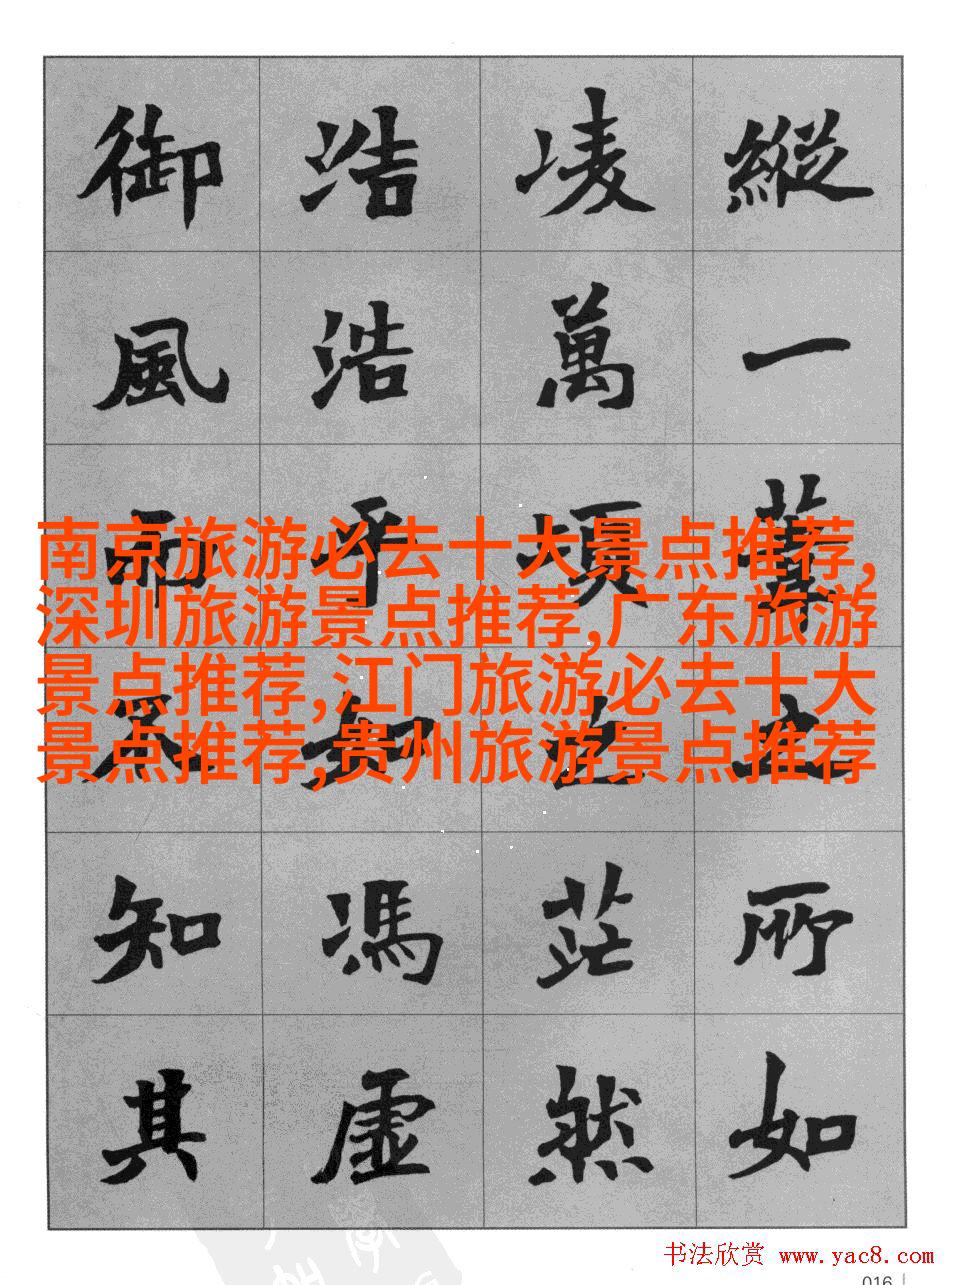 縱一葦之所如
凌萬頃之茫然
浩浩乎如馮虛
御風而不知其
南京旅游必去十大景点推荐,
深圳旅游景点推荐,广东旅游
景点推荐,江门旅游必去十大
景点推荐,贵州旅游景点推荐
书法欣赏 www.yac8.com
016